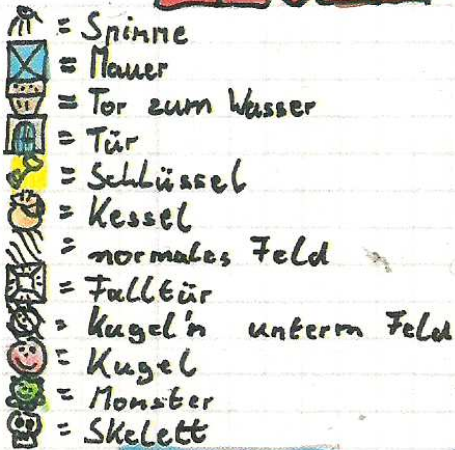 = Spinne
= Mauer
= Tor zum Wasser
= Tür
= Schlüssel
= Kessel
= normales Feld
= Falltür
= Kugel'n unterm Feld
= Kugel
= Monster
= Skelett